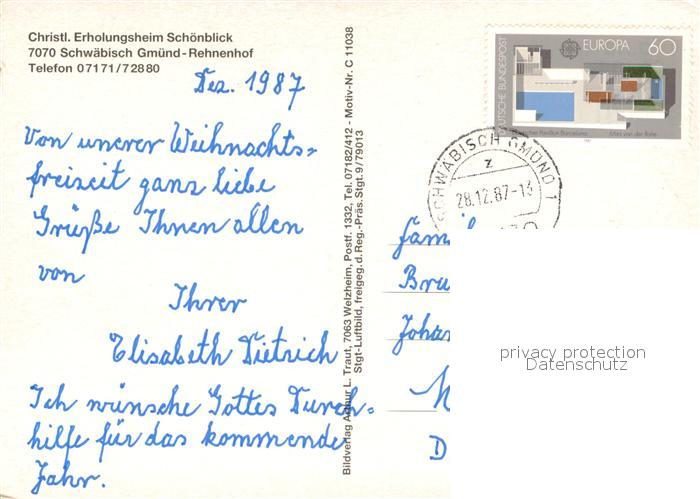 Christl. Erholungsheim Schönblick
7070 Schwäbisch Gmünd-Rehnenhof
Telefon 07171/72880
Dez. 1987
Von unserer Weihnachts=
freizeit ganz liebe
Grüße Ihnen allen
von
Ihrer
Elisabeth Dietrich
Ich wünsche Gottes Durch=
hilfe für das kommende
Jahr.
Bildverlag Arthur L. Traut, 7063 Welzheim, Postf. 1332, Tel. 07182/412 - Motiv-Nr. C 11038
Stgt-Luftbild, freigeg. d. Reg.-Präs. Stgt. 9/79013
DEUTSCHE BUNDESPOST
EUROPA 60
Deutscher Pavillon Barcelona Mies van der Rohe
1987
SCHWÄBISCH GMÜND 1
z
28.12.87-13
Fami
Bru
Johan
D
privacy protection
Datenschutz